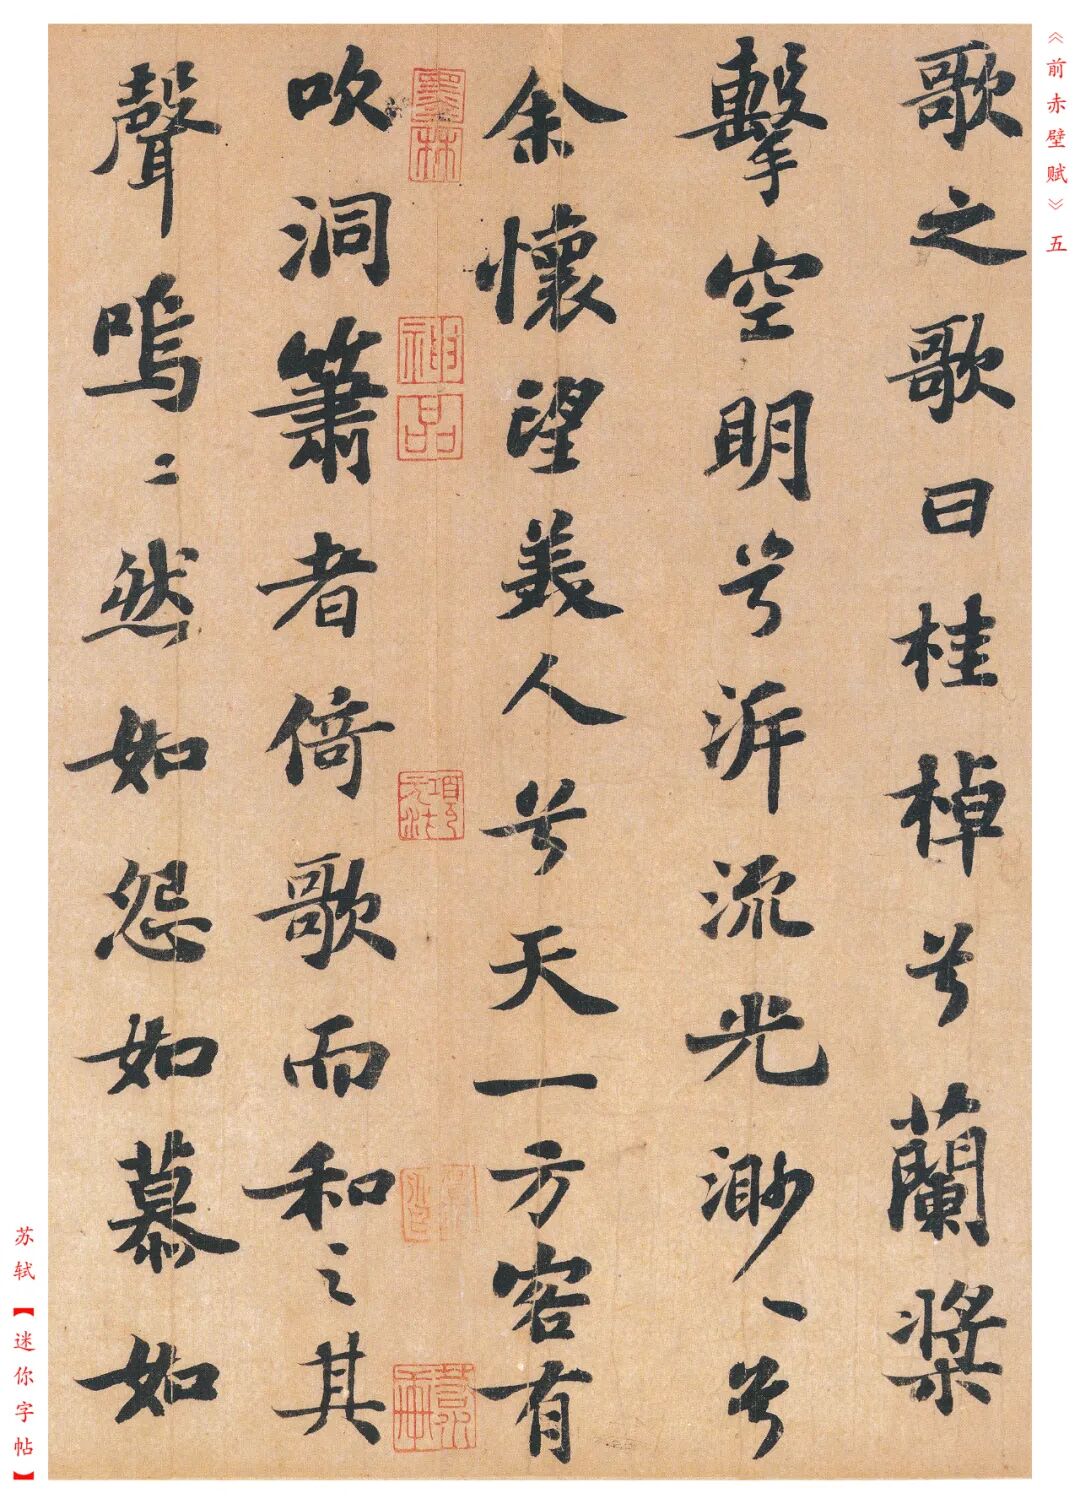 《前赤壁赋》五
歌之歌曰桂棹兮蘭槳
擊空明兮泝流光渺〻兮
余懷望美人兮天一方客有
墨林
神品
吹洞簫者倚歌而和之其
聲嗚〻然如怨如慕如
苏轼【迷你字帖】